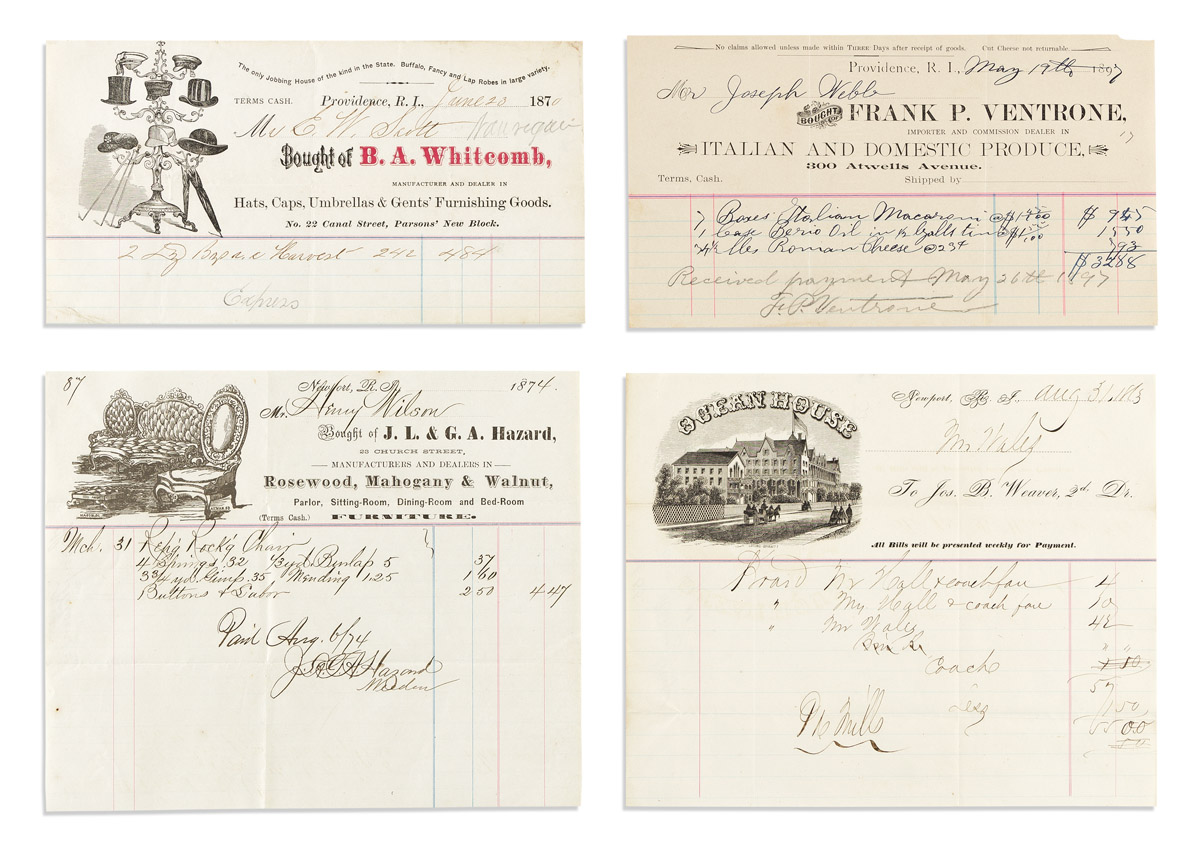 The only Jobbing House of the kind in the State. Buffalo, Fancy and Lap Robes in large variety.
TERMS CASH. Providence, R. I., June 20 1870
Mr E. W. Scott
Bought of B. A. Whitcomb,
MANUFACTURER AND DEALER IN
Hats, Caps, Umbrellas & Gents' Furnishing Goods.
No. 22 Canal Street, Parsons' New Block.
2 Dz Harvest 242 484
Express
No claims allowed unless made within THREE Days after receipt of goods. Cut Cheese not returnable.
Providence, R. I., May 19th 1897
Mr Joseph Webb
BOUGHT OF FRANK P. VENTRONE,
IMPORTER AND COMMISSION DEALER IN
ITALIAN AND DOMESTIC PRODUCE,
300 Atwells Avenue.
Terms, Cash. Shipped by
7 Boxes Italian Macaroni @ $
1 Case Berio Oil in tin @
lbs Roman Cheese @ 23¢
$32 88
Received payment May 26th 1897
F. P. Ventrone
87
Newport, R. I. 1874.
Mr. Henry Wilson
Bought of J. L. & G. A. Hazard,
23 CHURCH STREET,
MANUFACTURERS AND DEALERS IN
Rosewood, Mahogany & Walnut,
Parlor, Sitting-Room, Dining-Room and Bed-Room
(Terms Cash.) FURNITURE.
Mch. 31 Rep'g Rock'g Chair
4 Springs .32 1/3 yd Burlap 5 37
3 3/4 yd Gimp .35, Mending 1.25 1 60
Buttons & Labor 2 50 4 47
Paid Aug. 6/74
J. L. & G. A. Hazard
OCEAN HOUSE
Newport, R. I., Aug 31, 18
Mr. Wales
To Jos. B. Weaver, 2d. Dr.
All Bills will be presented weekly for Payment.
Board Mr Hall & coach fare 4
" My Hall & coach fare 10
" Mr Wales 42
Coach
57